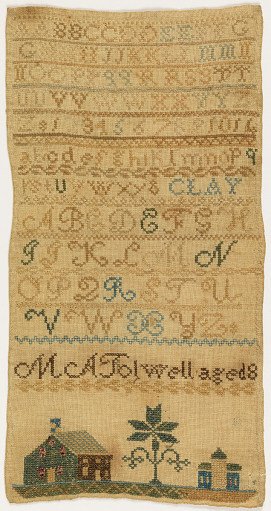 BBCCDDEEFFG
G
OOPPQQRRSSTT
UUVVWWXXYYZ
3 4 5 6 7
abcdefghiklmnopq
rstuvwxyz CLAY
A B C D E F G H
I J K L M N
O P Q R S T U
V W X Y Z
M A Folwell aged 8